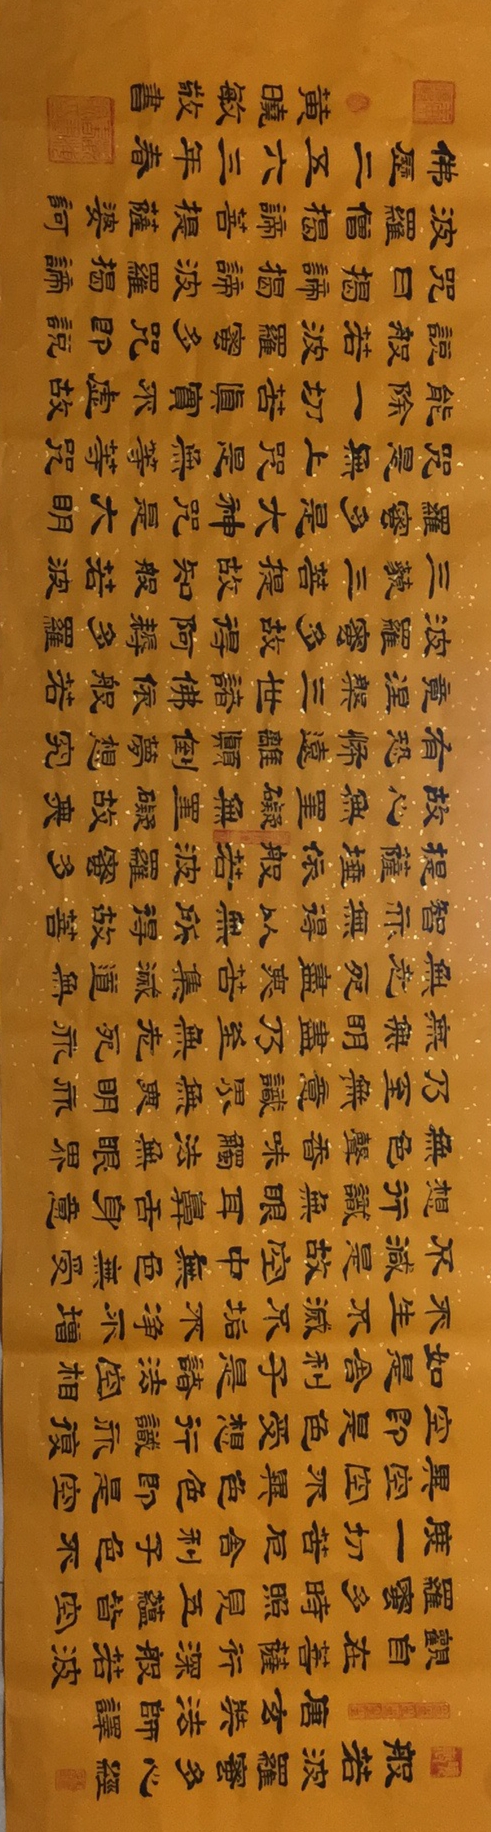 般若波羅蜜多心經
唐玄奘法師譯
觀自在菩薩行深般若波
羅蜜多時照見五蘊皆空
度一切苦厄舍利子色不
異空空不異色色即是空
空即是色受想行識亦復
如是舍利子是諸法空相
不生不滅不垢不淨不增
不減是故空中無色無受
想行識無眼耳鼻舌身意
無色聲香味觸法無眼界
乃至無意識界無無明亦
無無明盡乃至無老死亦
無老死盡無苦集滅道無
智亦無得以無所得故菩
提薩埵依般若波羅蜜多
故心無罣礙無罣礙故無
有恐怖遠離顛倒夢想究
竟涅槃三世諸佛依般若
波羅蜜多故得阿耨多羅
三藐三菩提故知般若波
羅蜜多是大神咒是大明
咒是無上咒是無等等咒
能除一切苦真實不虛故
說般若波羅蜜多咒即說
咒曰揭諦揭諦波羅揭諦
波羅僧揭諦菩提薩婆訶
佛曆二五六三年春
黃曉敏敬書